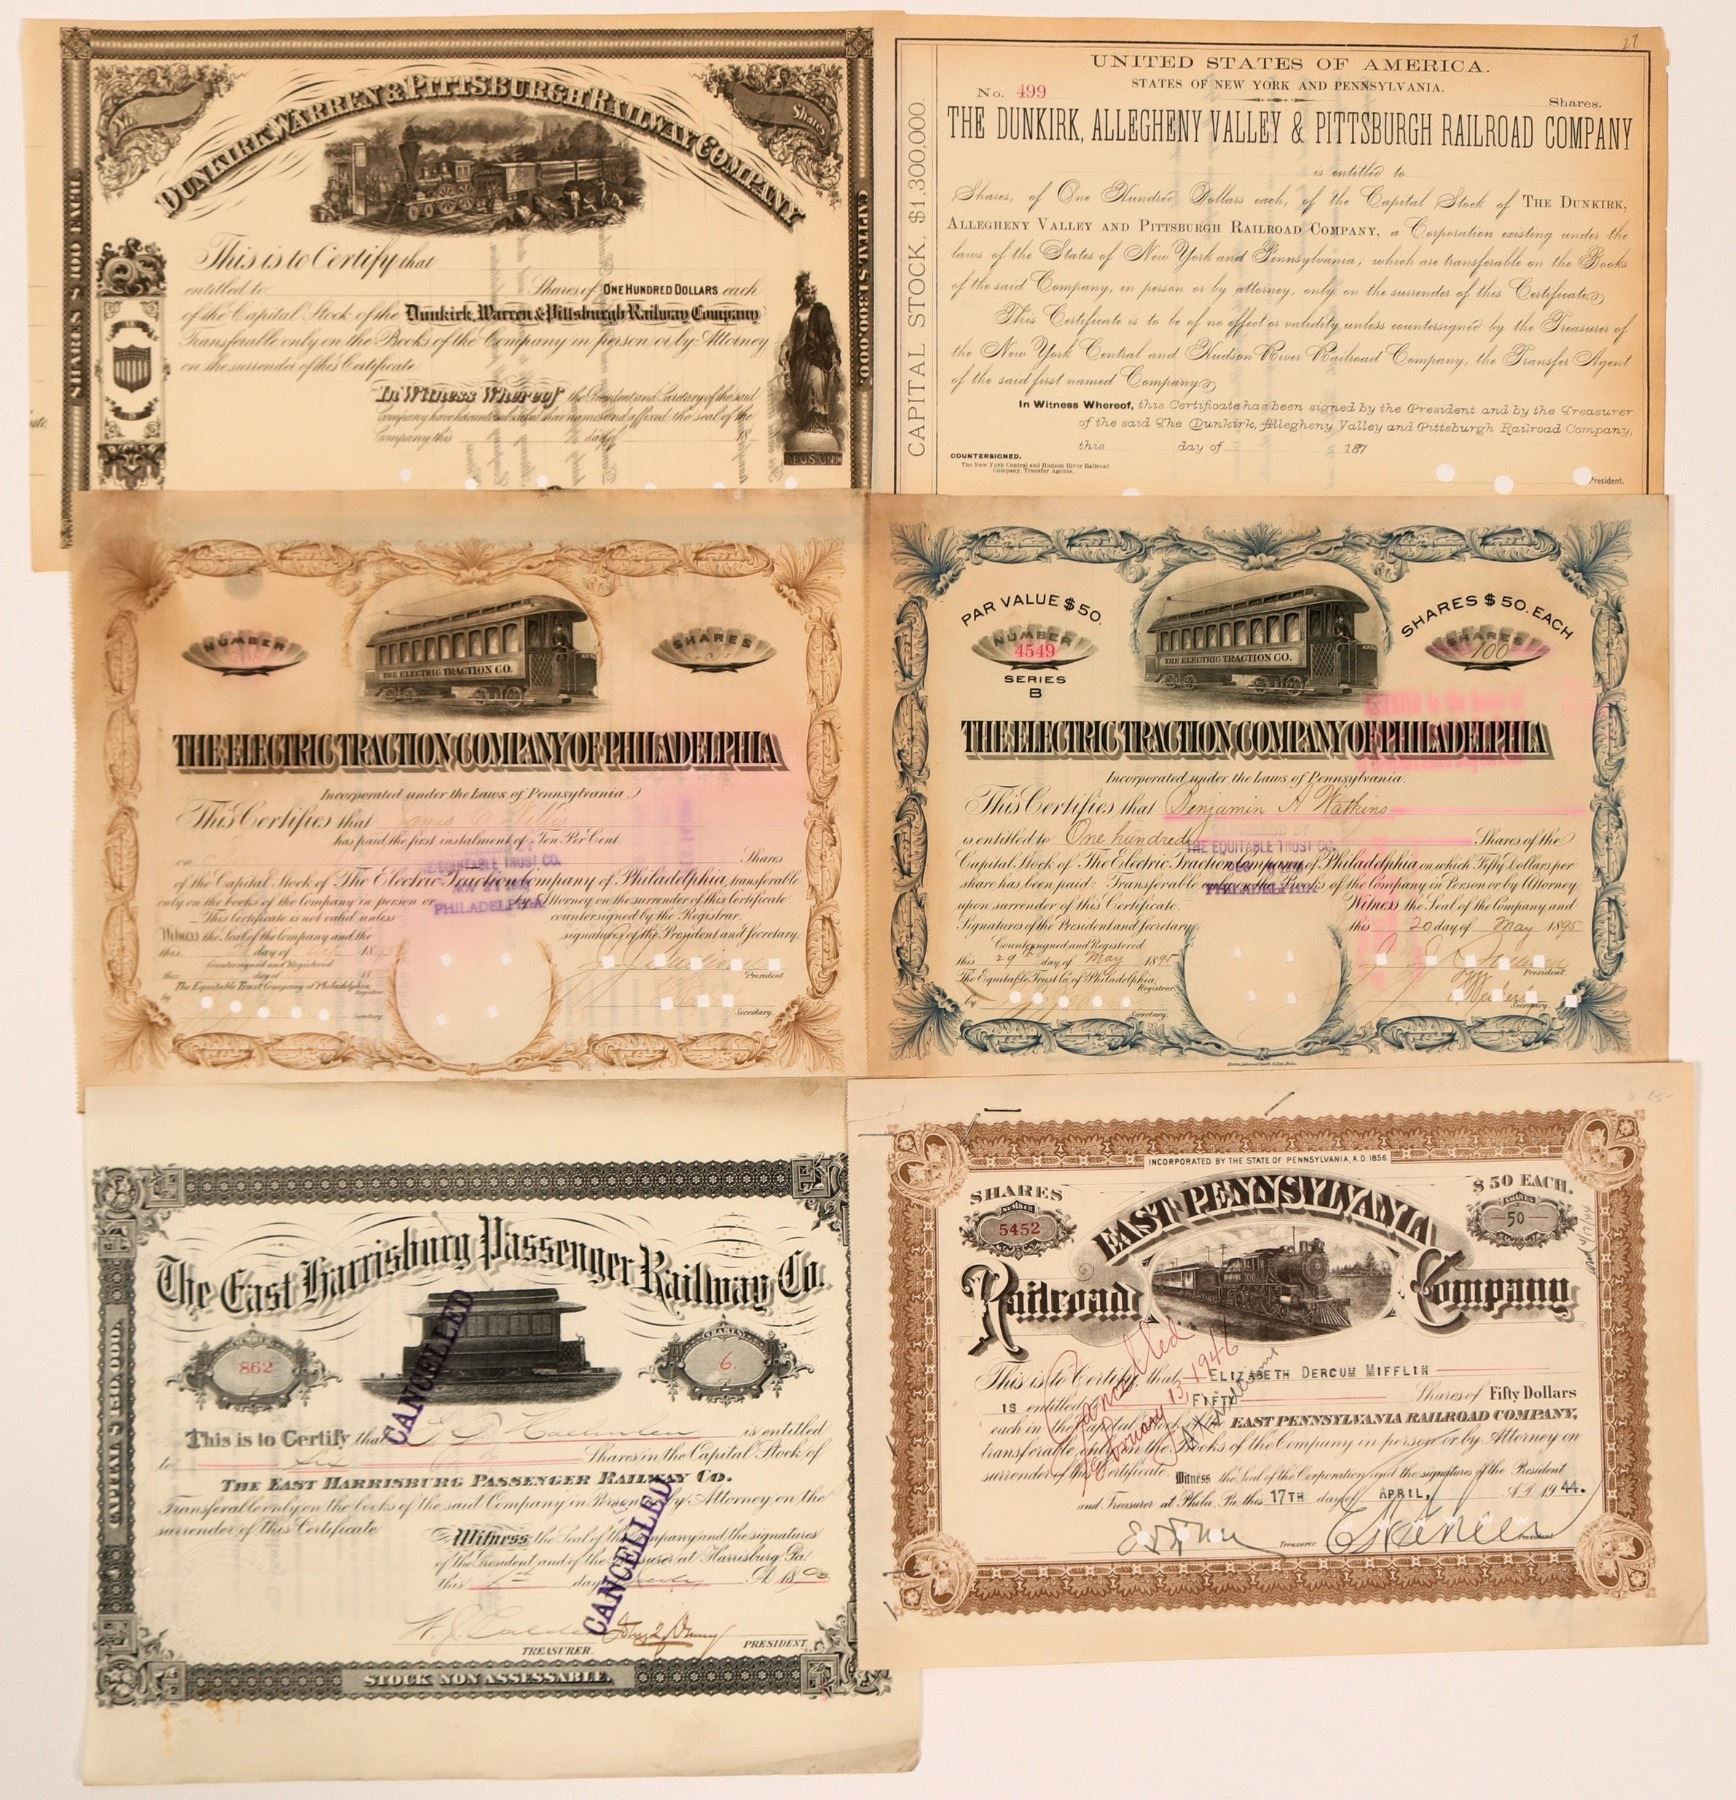 DUNKIRK, WARREN & PITTSBURGH RAILWAY COMPANY
No.
Shares
SHARES $100 EACH.
CAPITAL $1,300,000.
This is to Certify that
entitled to Shares of ONE HUNDRED DOLLARS each
of the Capital Stock of the Dunkirk, Warren & Pittsburgh Railway Company
Transferable only on the Books of the Company in person or by Attorney
on the surrender of this Certificate
In Witness Whereof the President and Secretary of the said
Company have hereunto subscribed their names and affixed the seal of the
Company this day of 18
27
UNITED STATES OF AMERICA.
STATES OF NEW YORK AND PENNSYLVANIA.
No. 499
Shares.
THE DUNKIRK, ALLEGHENY VALLEY & PITTSBURGH RAILROAD COMPANY
CAPITAL STOCK, $1,300,000.
is entitled to
Shares, of One Hundred Dollars each, of the Capital Stock of THE DUNKIRK,
ALLEGHENY VALLEY AND PITTSBURGH RAILROAD COMPANY, a Corporation existing under the
laws of the States of New York and Pennsylvania; which are transferable on the Books
of the said Company, in person or by attorney, only on the surrender of this Certificate.
This Certificate is to be of no effect or validity unless countersigned by the Treasurer of
the New York Central and Hudson River Railroad Company, the Transfer Agent
of the said first named Company.
In Witness Whereof, this Certificate has been signed by the President and by the Treasurer
of the said The Dunkirk, Allegheny Valley and Pittsburgh Railroad Company,
this day of 187
COUNTERSIGNED.
The New York Central and Hudson River Railroad
Company, Transfer Agents.
President.
NUMBER
SHARES
THE ELECTRIC TRACTION CO.
THE ELECTRIC TRACTION COMPANY OF PHILADELPHIA
Incorporated under the Laws of Pennsylvania
This Certifies that
has paid the first instalment of Ten Per Cent.
on Shares
of the Capital Stock of The Electric Traction Company of Philadelphia, transferable
only on the books of the Company in person or by Attorney on the surrender of this Certificate.
This Certificate is not valid unless countersigned by the Registrar.
Witness the Seal of the Company and the signatures of the President and Secretary.
this day of 18
Countersigned and Registered
this day of 18
The Equitable Trust Company of Philadelphia,
Registrar
by
Secretary.
President
Secretary.
THE EQUITABLE TRUST CO.
NOV
PHILADELPHIA
PAR VALUE $50.
NUMBER
4549
SERIES
B
THE ELECTRIC TRACTION CO.
SHARES $50. EACH
SHARES
100
THE ELECTRIC TRACTION COMPANY OF PHILADELPHIA
Incorporated under the Laws of Pennsylvania.
This Certifies that Benjamin H Watkins
is entitled to One hundred Shares of the
Capital Stock of The Electric Traction Company of Philadelphia on which Fifty Dollars per
share has been paid: Transferable only on the Books of the Company in Person or by Attorney
upon surrender of this Certificate. Witness the Seal of the Company and
Signatures of the President and Secretary this 20 day of May 1895
Countersigned and Registered
this 29th day of May 1895
The Equitable Trust Co of Philadelphia
Registrar
by
Secretary.
President.
Secretary.
CANCELLED BY
THE EQUITABLE TRUST CO.
PHILADELPHIA
The East Harrisburg Passenger Railway Co.
NUMBER
862
SHARES
6.
CAPITAL
CANCELLED
This is to Certify that is entitled
to six Shares in the Capital Stock of
THE EAST HARRISBURG PASSENGER RAILWAY CO.
Transferable only on the books of the said Company in Person or by Attorney on the
surrender of this Certificate
Witness the Seal of the Company and the signatures
of the President and of the Treasurer at Harrisburg Pa
this day A.D. 18
CANCELLED
TREASURER.
PRESIDENT
STOCK NON ASSESSABLE.
INCORPORATED BY THE STATE OF PENNSYLVANIA, A.D. 1856
SHARES
NUMBER
5452
$50 EACH.
SHARES
50
EAST PENNSYLVANIA
Railroad Company
This is to Certify, that ELIZABETH DERCUM MIFFLIN
IS entitled to FIFTY Shares of Fifty Dollars
each in the Capital Stock of the EAST PENNSYLVANIA RAILROAD COMPANY,
transferable only on the Books of the Company in person or by Attorney on
surrender of this Certificate.
Witness the Seal of the Corporation and the signatures of the President
and Treasurer at Phila. Pa. this 17TH day of APRIL, A.D. 1944.
Treasurer
President
Cancelled
February 13, 1946